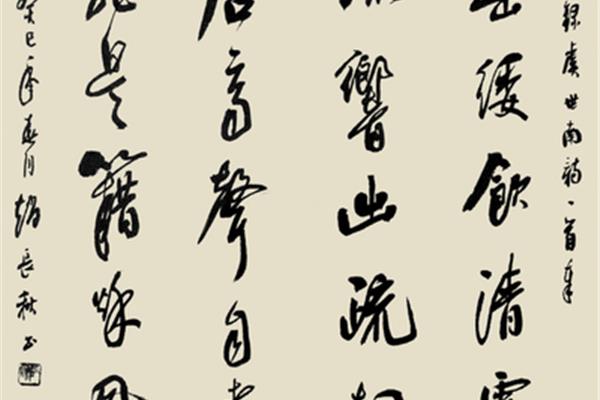 録虞世南詩一首
垂緌飲清露
流響出疏桐
居高聲自遠
非是籍秋風
癸巳年春月趙長秋書